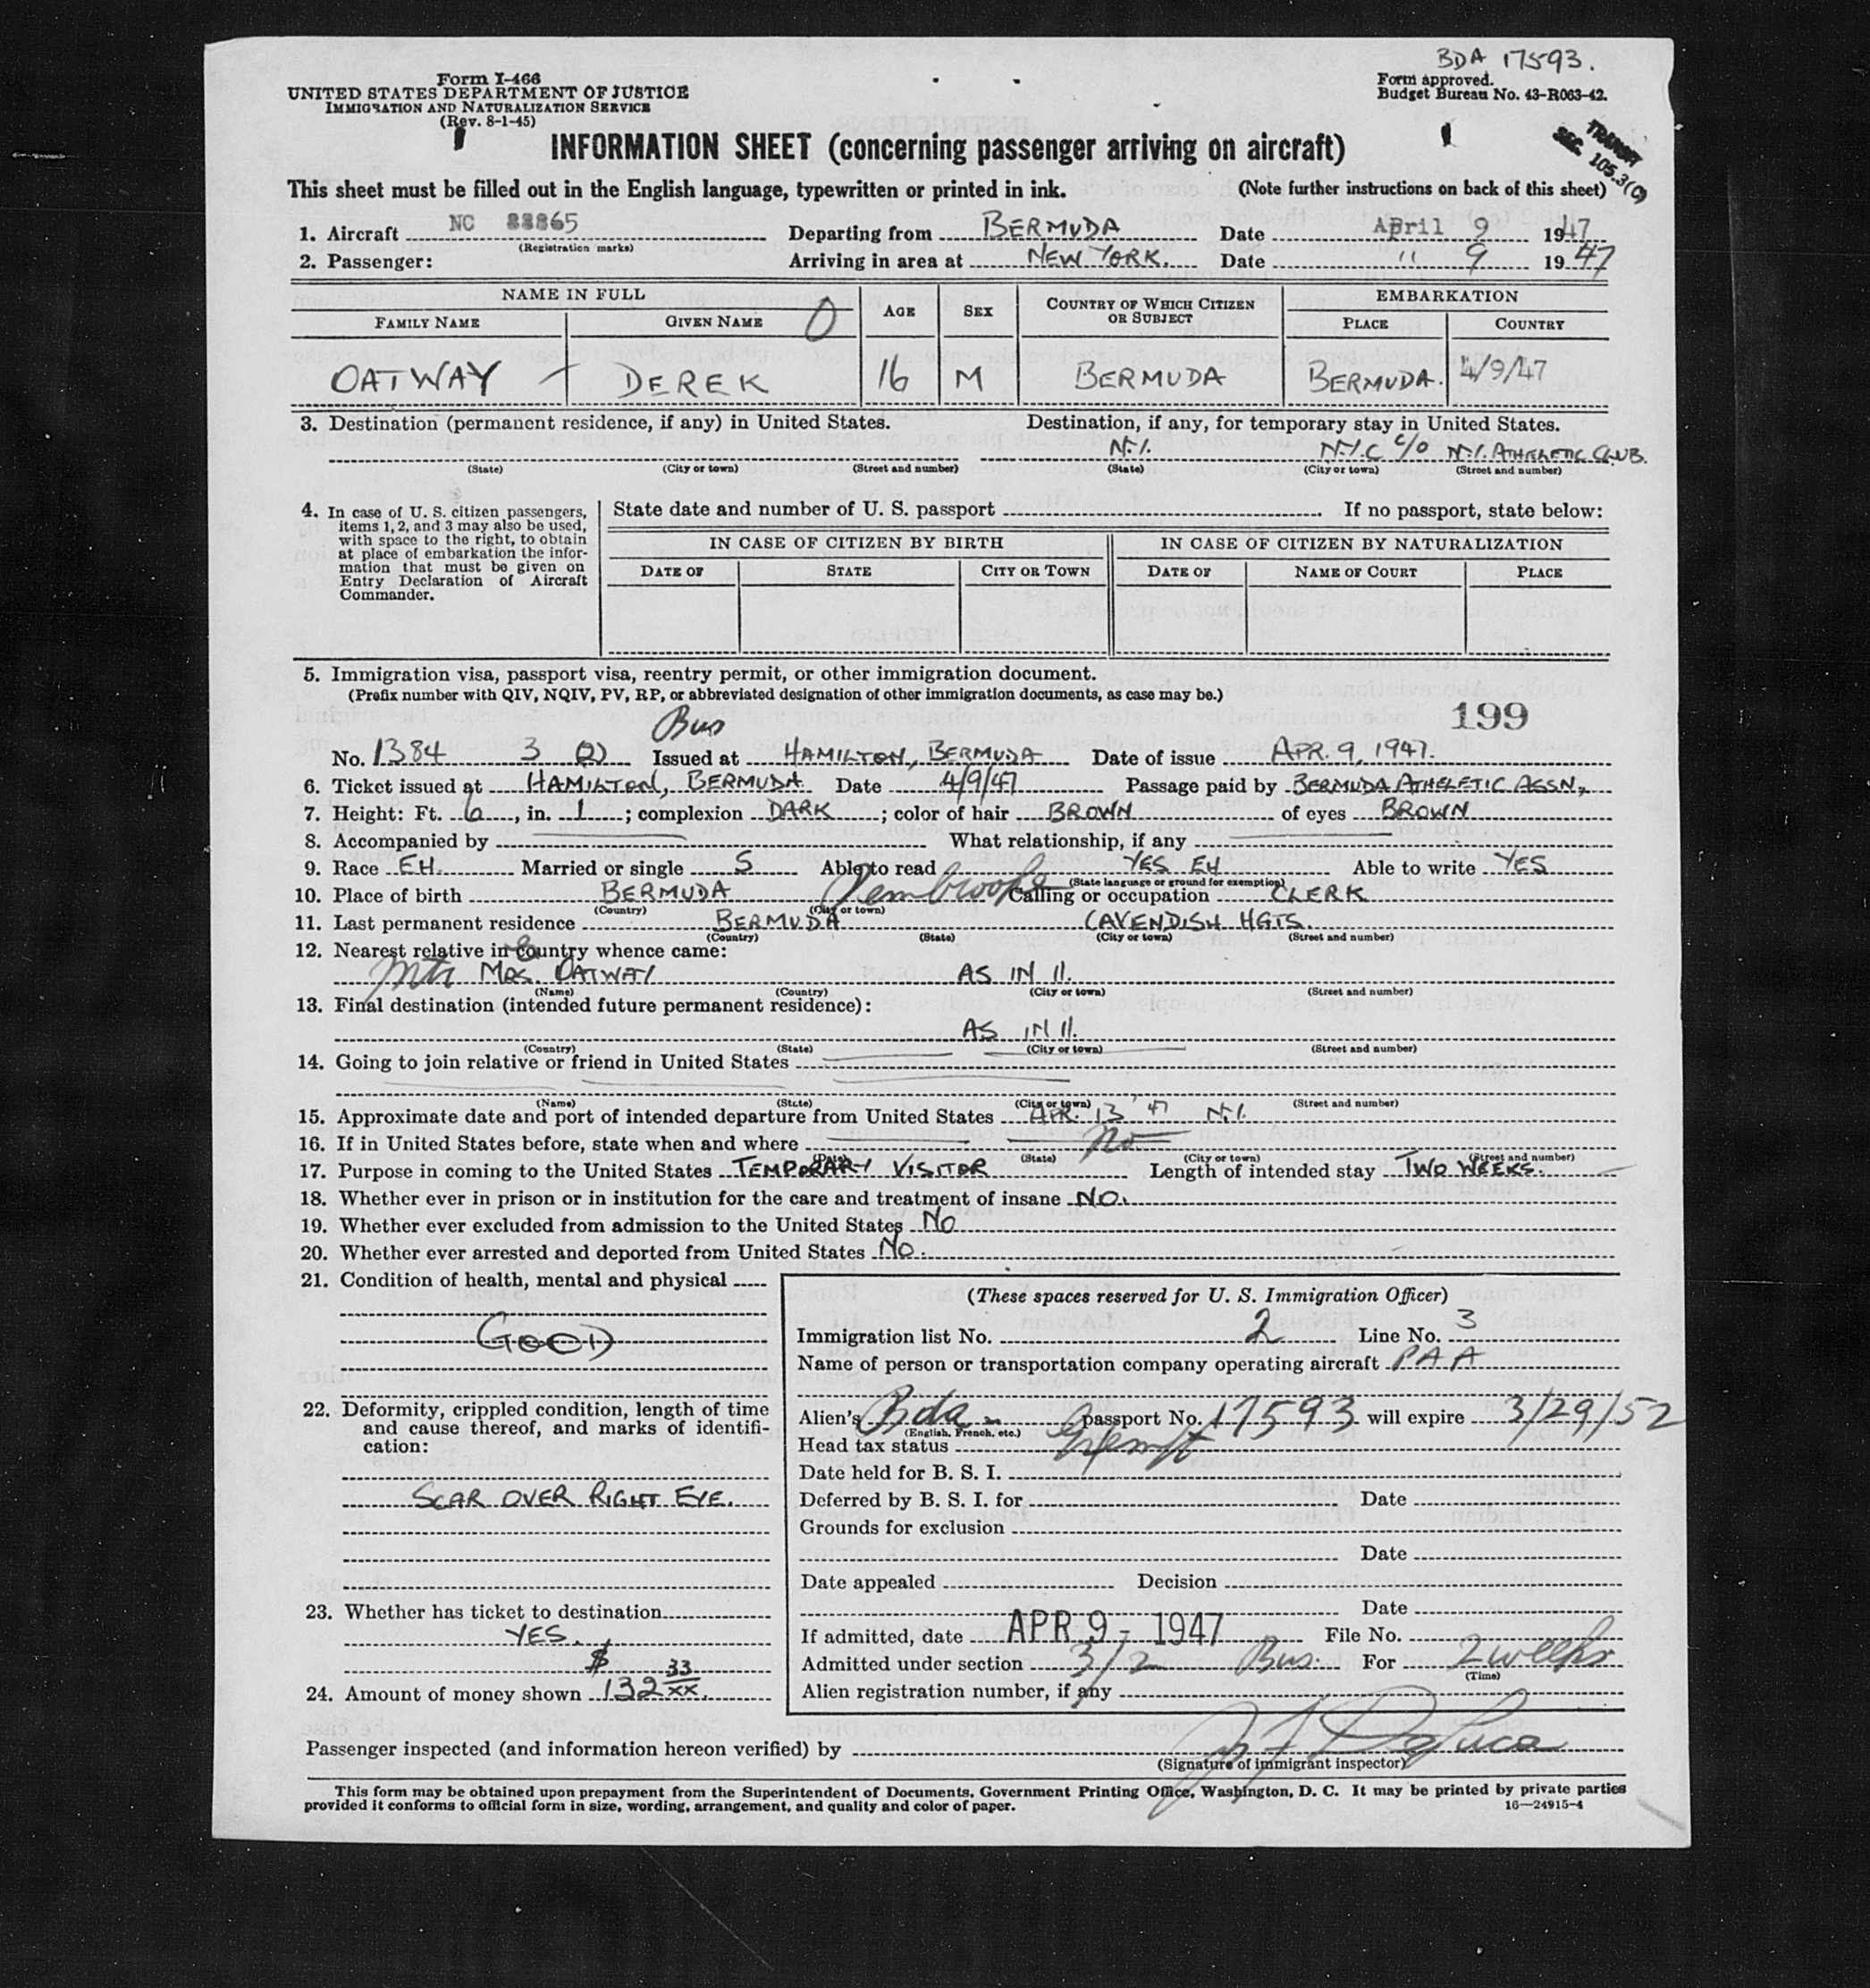 BDA 17593.
Form I-466
UNITED STATES DEPARTMENT OF JUSTICE
IMMIGRATION AND NATURALIZATION SERVICE
(Rev. 8-1-45)
Form approved.
Budget Bureau No. 43-R063-42.
TRANSIT
SEC. 105.3(C)
INFORMATION SHEET (concerning passenger arriving on aircraft)
This sheet must be filled out in the English language, typewritten or printed in ink. (Note further instructions on back of this sheet)
1. Aircraft NC 88865 Departing from BERMUDA Date April 9 1947
(Registration marks)
2. Passenger: Arriving in area at NEW YORK. Date " 9 1947
NAME IN FULL AGE SEX COUNTRY OF WHICH CITIZEN OR SUBJECT EMBARKATION
FAMILY NAME GIVEN NAME O PLACE COUNTRY
OATWAY DEREK 16 M BERMUDA BERMUDA. 4/9/47
3. Destination (permanent residence, if any) in United States. Destination, if any, for temporary stay in United States.
N.Y. N.Y.C c/o N.Y. ATHELETIC CLUB.
(State) (City or town) (Street and number) (State) (City or town) (Street and number)
4. In case of U. S. citizen passengers, items 1, 2, and 3 may also be used, with space to the right, to obtain at place of embarkation the information that must be given on Entry Declaration of Aircraft Commander.
State date and number of U. S. passport If no passport, state below:
IN CASE OF CITIZEN BY BIRTH IN CASE OF CITIZEN BY NATURALIZATION
DATE OF STATE CITY OR TOWN DATE OF NAME OF COURT PLACE
5. Immigration visa, passport visa, reentry permit, or other immigration document.
(Prefix number with QIV, NQIV, PV, RP, or abbreviated designation of other immigration documents, as case may be.)
Bus 199
No. 1384 3 (2) Issued at HAMILTON, BERMUDA Date of issue APR. 9, 1947.
6. Ticket issued at HAMILTON, BERMUDA Date 4/9/47 Passage paid by BERMUDA ATHELETIC ASSN.
7. Height: Ft. 6, in. 1; complexion DARK; color of hair BROWN of eyes BROWN
8. Accompanied by What relationship, if any
9. Race EH. Married or single S Able to read YES EH Able to write YES
(State language or ground for exemption)
10. Place of birth BERMUDA Pembroke Calling or occupation CLERK
(Country) (City or town)
11. Last permanent residence BERMUDA CAVENDISH HGTS.
(Country) (State) (City or town) (Street and number)
12. Nearest relative in country whence came:
Mtr MRS. OATWAY AS IN 11.
(Name) (Country) (City or town) (Street and number)
13. Final destination (intended future permanent residence):
AS IN 11.
(Country) (State) (City or town) (Street and number)
14. Going to join relative or friend in United States
(Name) (State) (City or town) (Street and number)
15. Approximate date and port of intended departure from United States APR. 13 '47 N.Y.
16. If in United States before, state when and where no
(Date) (State) (City or town) (Street and number)
17. Purpose in coming to the United States TEMPORARY VISITOR Length of intended stay TWO WEEKS.
18. Whether ever in prison or in institution for the care and treatment of insane NO.
19. Whether ever excluded from admission to the United States NO
20. Whether ever arrested and deported from United States NO.
21. Condition of health, mental and physical
GOOD
22. Deformity, crippled condition, length of time and cause thereof, and marks of identification:
SCAR OVER RIGHT EYE.
23. Whether has ticket to destination
YES.
24. Amount of money shown $132 33/xx.
(These spaces reserved for U. S. Immigration Officer)
Immigration list No. 2 Line No. 3
Name of person or transportation company operating aircraft PAA
Alien's Bda passport No. 17593 will expire 3/29/52
(English, French, etc.)
Head tax status Exempt
Date held for B. S. I.
Deferred by B. S. I. for Date
Grounds for exclusion
Date
Date appealed Decision
Date
If admitted, date APR 9 - 1947 File No.
Admitted under section 3/2 Bus. For 2 weeks
(Time)
Alien registration number, if any
Passenger inspected (and information hereon verified) by
(Signature of immigrant inspector)
This form may be obtained upon prepayment from the Superintendent of Documents, Government Printing Office, Washington, D. C. It may be printed by private parties
provided it conforms to official form in size, wording, arrangement, and quality and color of paper. 16—24915-4